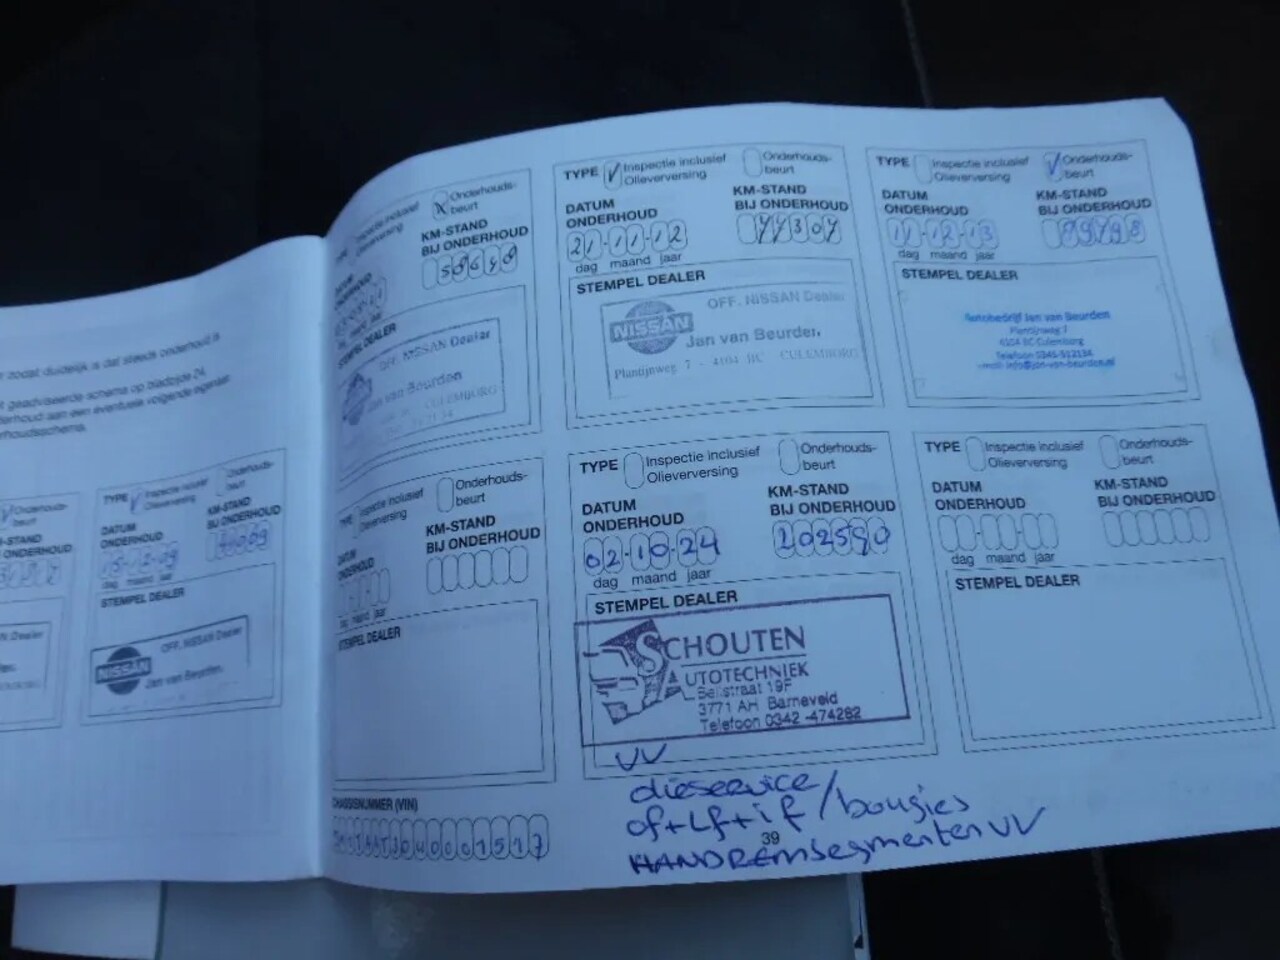 r zodat duidelijk is dat steeds onderhoud is
t geadviseerde schema op bladzijde 24,
erhoud aan een eventuele volgende eigenaar
rhoudsschema.
Onderhouds-
beurt
KM-STAND
BIJ ONDERHOUD
TYPE Inspectie inclusief
Olieverversing
Onderhouds-
DATUM
ONDERHOUD
KM-STAND
BIJ ONDERHOUD
15-12-09
dag maand jaar
STEMPEL DEALER
NISSAN
OFF. NISSAN Dealer
Jan van Beurden
Inspectie inclusief
Olieverversing
X Onderhouds-
beurt
DATUM
ONDERHOUD
KM-STAND
BIJ ONDERHOUD
58648
STEMPEL DEALER
OFF. NISSAN Dealer
Jan van Beurden
CULEMBORG
TYPE Inspectie inclusief
Olieverversing
Onderhouds-
beurt
DATUM
ONDERHOUD
KM-STAND
BIJ ONDERHOUD
21-11-12
77307
dag maand jaar
STEMPEL DEALER
NISSAN
OFF. NISSAN Dealer
Jan van Beurden
Plantijnweg 7 - 4104 BC CULEMBORG
TYPE Inspectie inclusief
Olieverversing
Onderhouds-
beurt
DATUM
ONDERHOUD
KM-STAND
BIJ ONDERHOUD
11-12-13
dag maand jaar
STEMPEL DEALER
Autobedrijf Jan van Beurden
Plantijnweg 7
4104 BC Culemborg
Telefoon 0345-512134
email: info@jan-van-beurden.nl
TYPE Inspectie inclusief
Olieverversing
Onderhouds-
beurt
DATUM
ONDERHOUD
KM-STAND
BIJ ONDERHOUD
STEMPEL DEALER
TYPE Inspectie inclusief
Olieverversing
Onderhouds-
beurt
DATUM
ONDERHOUD
KM-STAND
BIJ ONDERHOUD
02-10-24
202590
dag maand jaar
STEMPEL DEALER
SCHOUTEN
AUTOTECHNIEK
Bellstraat 19F
3771 AH Barneveld
Telefoon 0342-474282
TYPE Inspectie inclusief
Olieverversing
Onderhouds-
beurt
DATUM
ONDERHOUD
KM-STAND
BIJ ONDERHOUD
dag maand jaar
STEMPEL DEALER
VV
of+Lf+if/bougies
HANDREMsegmenten VV
CHASSISNUMMER (VIN)
39